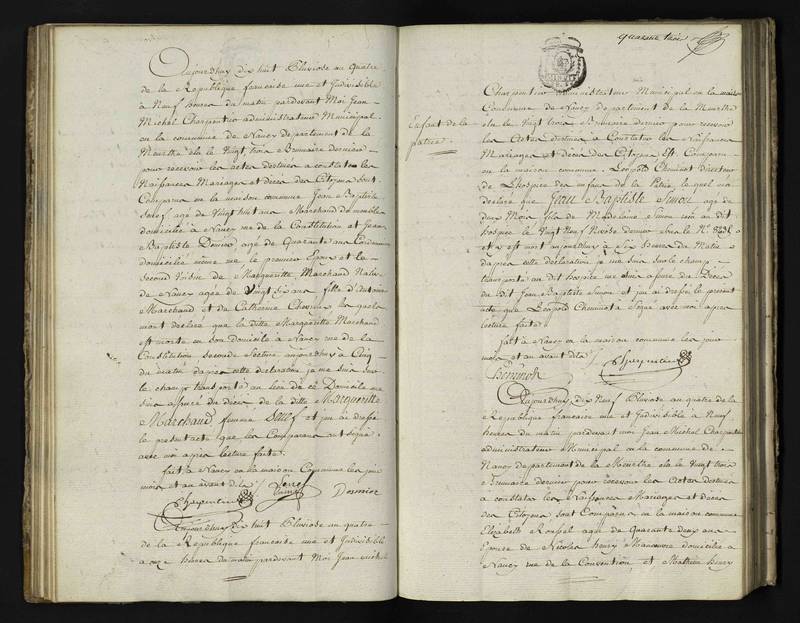 Aujourdhuy dix huit Pluviose an quatre
de la Republique francaise une et Indivisible
à Neuf heures du matin pardevant Moi Jean
Michel Charpentier administrateur Municipal
en la commune de Nancy departement de la
Meurthe élu le Vingt trois Brumaire dernier
pour recevoir les actes destinés a constater les
Naissances Mariages et décès des Citoyens sont
Comparus en la maison commune Jean Baptiste
agé de Vingt huit ans Marchand de meubles
domicilié à Nancy rue de la Constitution et Jean
Baptiste agé de Quarante ans Cordonnier
domicilié même rue le premier Epoux et le
second Voisin de Margueritte Marchand Native
de Nancy agée de Vingt six ans fille d'Antoine
Marchand et de Catherine les quels
m'ont declaré que la ditte Margueritte Marchand
est morte en son domicile à Nancy rue de la
Constitution seconde Section aujourdhuy à Cinq
du matin dapres cette déclaration je me suis sur
le champ transporté au lieu de ce Domicile me
suis assuré du décès de la ditte Margueritte
Marchand femme et j'en ai dressé
le present acte que les Comparans ont signé
avec moi après lecture faite.
fait à Nancy en la maison Commune les jour
mois et an avant dits
Charpentier
Aujourdhuy dix huit Pluviose an quatre
de la Republique francaise une et Indivisible
a onze heures du matin pardevant Moi Jean Michel
quarante trois
Enfant de la
patrie
Charpentier administrateur Municipal en la
Commune de Nancy departement de la Meurthe
élu le Vingt trois Brumaire dernier pour recevoir
les Actes destinés a Constater les Naissances
Mariages et décès des Citoyens Est Comparu
en la maison commune Leopold Cheminot directeur
de L'hospice des enfans de la Patrie, le quel m'a
declaré que Jean Baptiste Simon agé de
deux Mois fils de Madelaine Simon au dit
hospice le Vingt Neuf Nivose dernier sous le No.
est mort aujourdhuy à Six heures du Matin
dapres cette declaration je me suis sur le champ
transporté au dit hospice me suis assuré du Décès
du dit Jean Baptiste Simon et j'en ai dressé le present
acte que Leopold Cheminot a Signé avec moi apres
lecture faite.
fait à Nancy en la maison commune les jour
mois et an avant dits
Charpentier
Cheminot
Aujourdhuy dix Neuf Pluviose an quatre de la
Republique francaise une et Indivisible à Neuf
heures du matin pardevant moi Jean Michel Charpentier
administrateur Municipal en la commune de
Nancy departement de la Meurthe élu le Vingt trois
Brumaire dernier pour recevoir les Actes destinés
a constater les Naissances Mariages et décès
des Citoyens sont Comparus en la maison commune
Elizabeth agée de Quarante deux ans
Epouse de Nicolas Henry Manoeuvre domicilié à
Nancy rue de la Convention, et Mathieu Henry